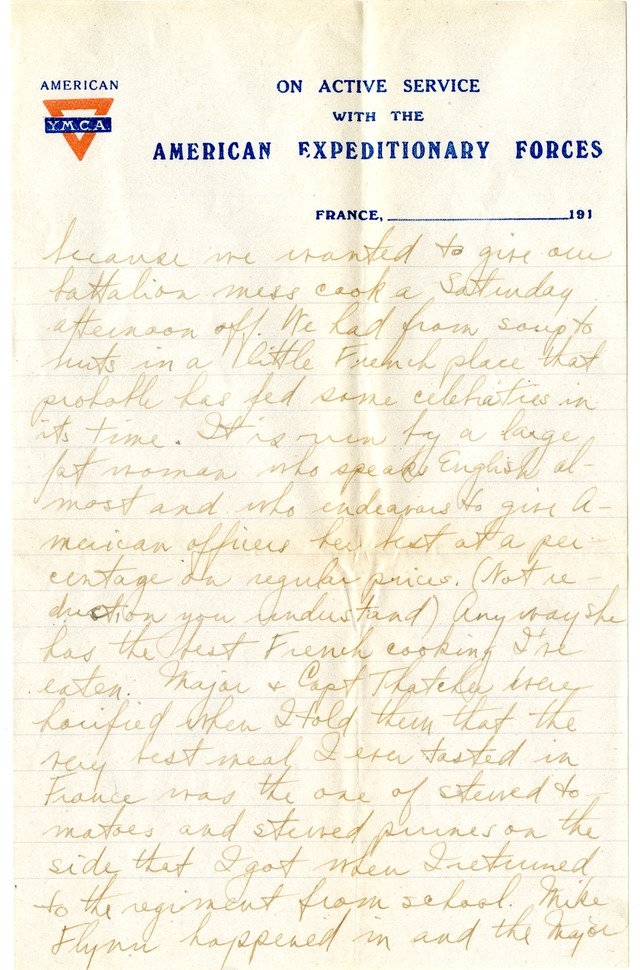 AMERICAN
Y.M.C.A.
ON ACTIVE SERVICE
WITH THE
AMERICAN EXPEDITIONARY FORCES
FRANCE, 191
because we wanted to give our
battalion mess cook a Saturday
afternoon off. We had from soup to
nuts in a little French place that
probable has fed some celebrities in
its time. It is run by a large
fat woman who speaks English al-
most and who endeavors to give A-
merican officers her best at a per-
centage on regular prices. (Not re-
duction you understand) Any way she
has the best French cooking I've
eaten. Major & Capt Thatcher were
horified when I told them that the
very best meal I ever tasted in
France was the one of stewed to-
matoes and stewed prunes on the
side that I got when I returned
to the regiment from school. Mike
Flynn happened in and the Major